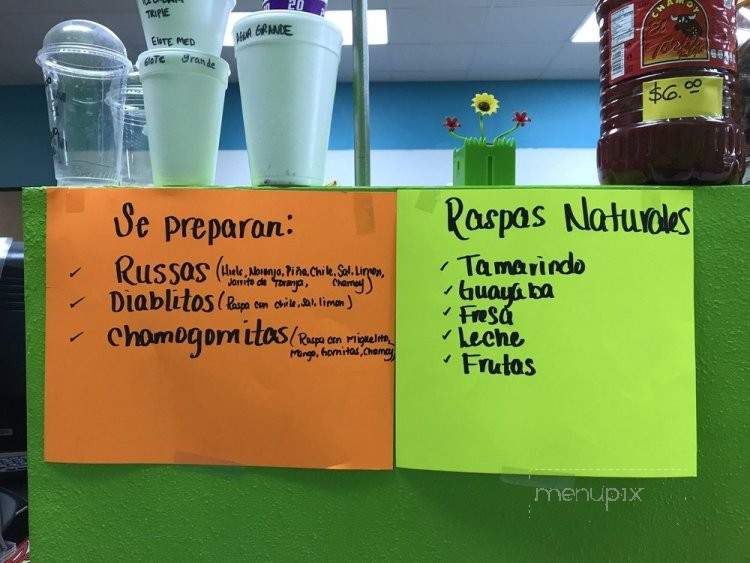 TRIPLE
ELOTE MED
Elote grande
AGUA GRANDE
20
CHAMOY
El
$6.00
Se preparan:
✓ RUSSAS (Hielo, Naranja, Piña, Chile, Sal, Limon,
Jarrito de Toronja, chamoy)
✓ Diablitos (Raspa con chile, sal, limon)
✓ Chamogomitas (Raspa con Miguelito,
Mango, Gomitas, Chamoy,
Raspas Naturales
✓ Tamarindo
✓ Guayaba
✓ Fresa
✓ Leche
✓ Frutas
menupix